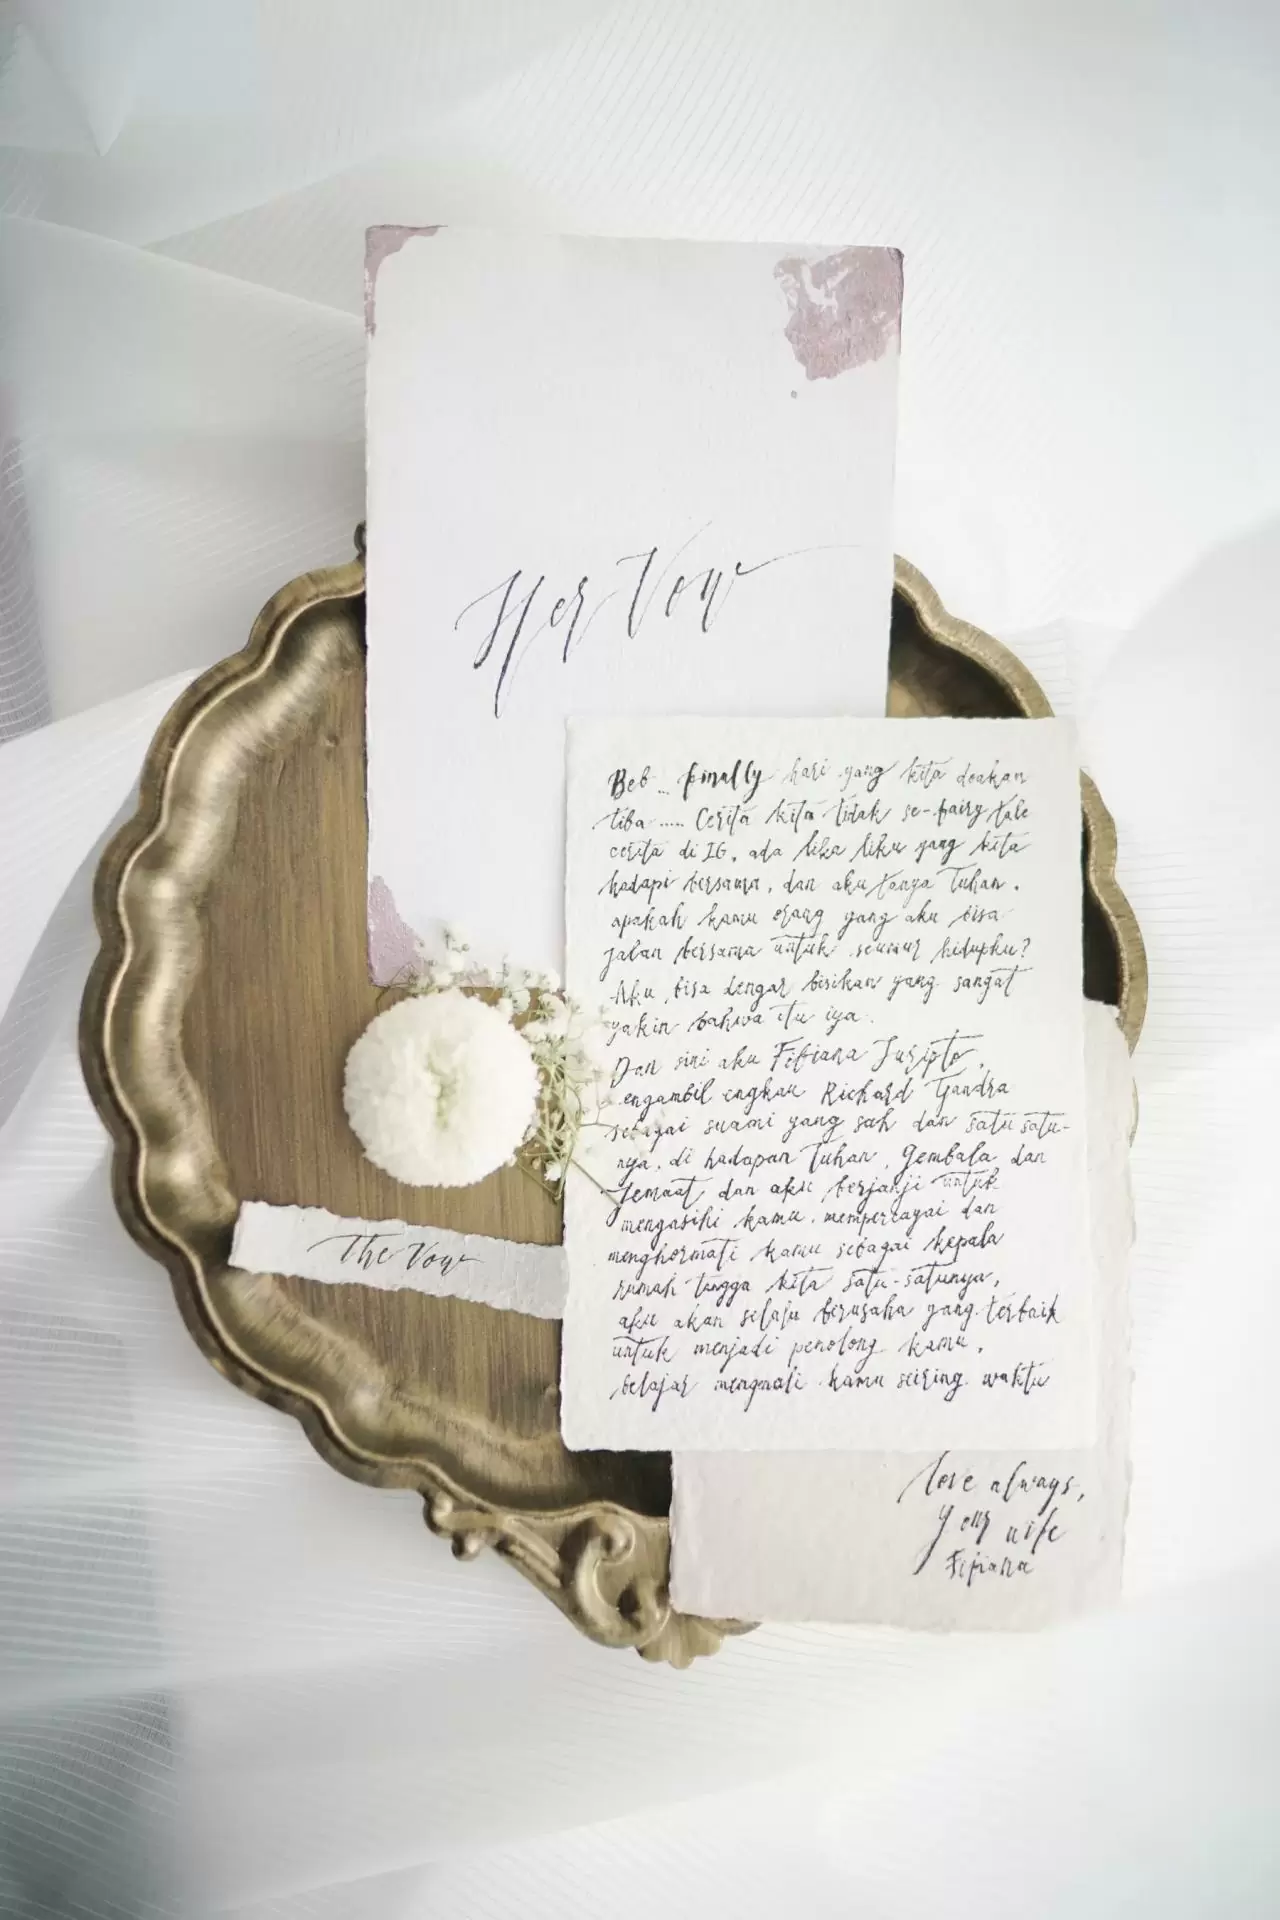 Her Vow
Beb... finally hari yang kita doakan
tiba ..... Cerita kita tidak se-fairy tale
cerita di IG, ada lika liku yang kita
hadapi bersama, dan aku tanya Tuhan,
apakah kamu orang yang aku bisa
jalan bersama untuk seumur hidupku?
Aku bisa dengar bisikan yang sangat
yakin bahwa itu iya.
Dan sini aku
engambil engkau Richard Tjandra
sebagai suami yang sah dan satu satu-
nya, di hadapan Tuhan, Gembala dan
Jemaat dan aku berjanji untuk
mengasihi kamu, mempercayai dan
menghormati kamu sebagai kepala
rumah tangga kita satu-satunya,
aku akan selalu berusaha yang terbaik
untuk menjadi penolong kamu,
belajar mengenali kamu seiring waktu
The Vow
love always,
your wife